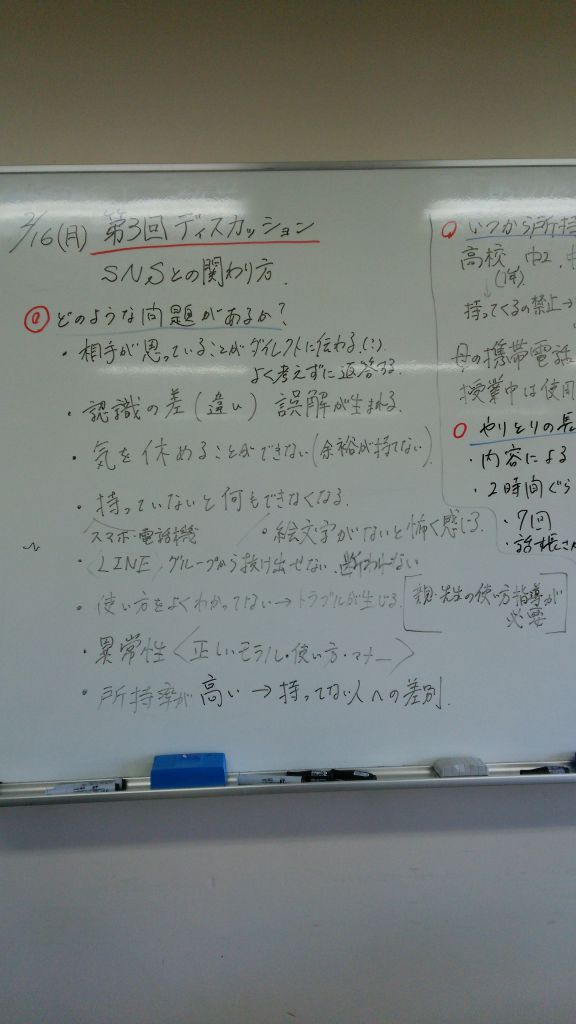 2/16(月) 第3回 ディスカッション
SNSとの関わり方.
どのような問題があるか?
・相手が思っていることがダイレクトに伝わる.(?)
よく考えずに返答する.
・認識の差(違い) 誤解が生まれる.
・気を休めることができない(余裕が持てない)
・持っていないと何もできなくなる.
スマホ・電話機
・絵文字がないと怖く感じる.
・LINE グループから抜け出せない. 断われない
・使い方をよくわかってない→トラブルが生じる.
[親・先生の使い方指導が
必要]
・異常性<正しいモラル・使い方・マナー>
・所持率が高い→持ってない人への差別.
いつから所持
高校 中2.
持ってくるの禁止→
母の携帯電話
授業中は使用
やりとりの長
・内容による
・2時間ぐら
・7回